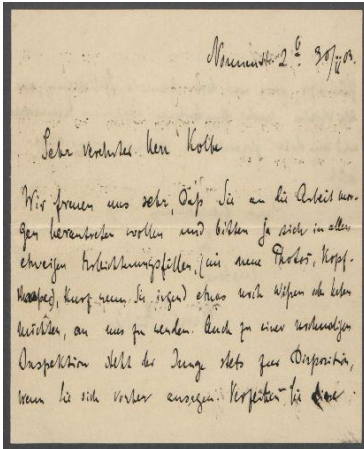 Sehr verehrter Herr Kolbe
Wir freuen uns sehr, Daß Sie an die Arbeit mor-
gen herantreten wollen und bitten Sie sich in allen
etwaigen (um neue Photos, Kopf-
kurz wenn Sie irgend etwas noch wissen oder haben
möchten, an uns zu wenden. Auch zu einer nochmaligen
Inspektion steht der Junge stets zur Disposition,
wenn Sie sich vorher ansagen. Verzeihen Sie diese